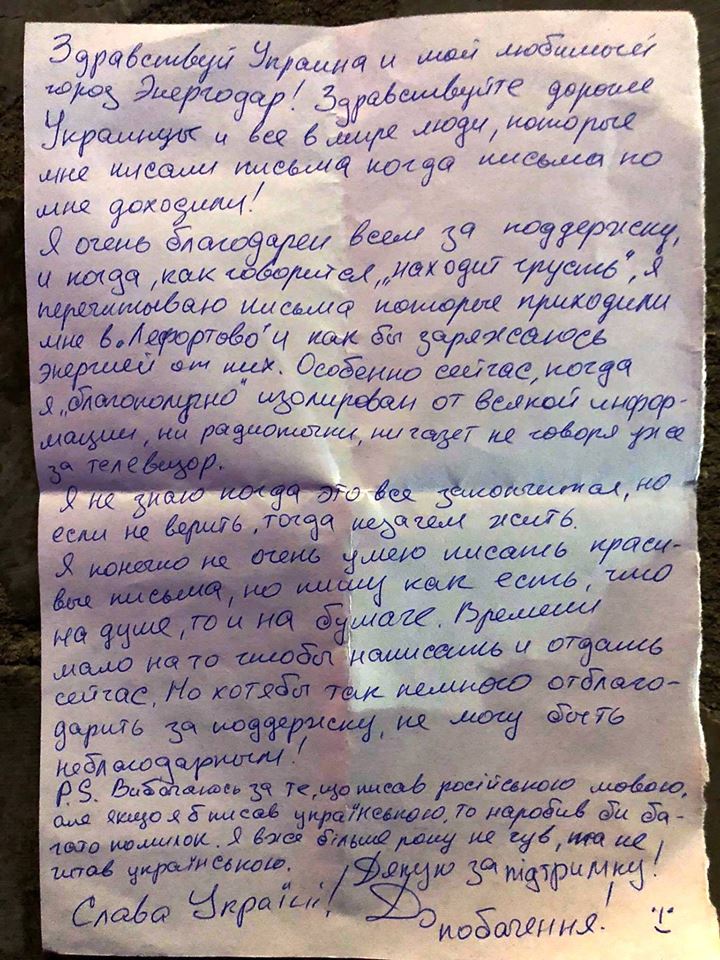 Здравствуй Украина и мой любимый
город Энергодар! Здравствуйте дорогие
Украинцы и все в мире люди, которые
мне писали письма когда письма ко
мне доходили!
Я очень благодарен всем за поддержку,
и когда, как говорится, „находит грусть", я
перечитываю письма которые приходили
мне в „Лефортово" и как бы заряжаюсь
энергией от них. Особенно сейчас, когда
я „благополучно" изолирован от всякой инфор-
мации, ни радиоточки, ни газет не говоря уже
за телевизор.
Я не знаю когда это все закончится, но
если не верить, тогда незачем жить.
Я конечно не очень умею писать краси-
вые письма, но пишу как есть, что
на душе, то и на бумаге. Времени
мало на то чтобы написать и отдать
сейчас. Но хотябы так немного отблаго-
дарить за поддержку, не могу быть
неблагодарным!
P.S. Вибачаюсь за те, що писав російською мовою,
але якщо я б писав українською, то наробив би ба-
гато помилок. Я вже більше року не чув, та не
читав українською. Дякую за підтримку!
Слава Україні! До побачення!